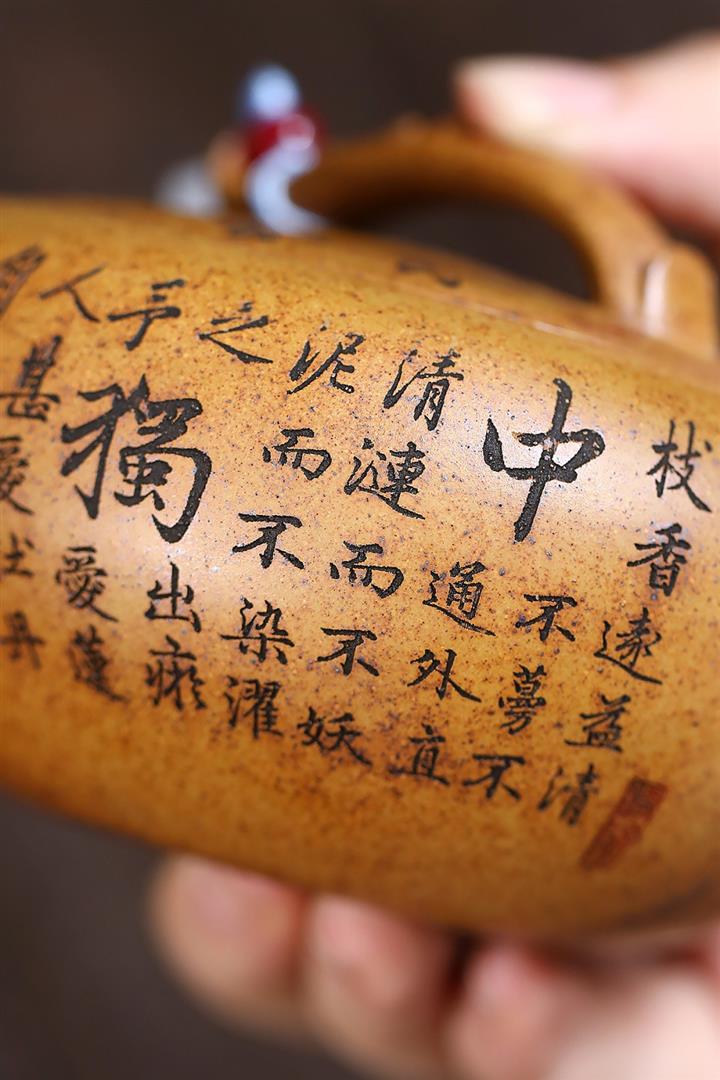 人甚愛牡丹
予獨愛蓮
之出淤
泥而不染濯
清漣而不妖
中通外直
不蔓不
枝香遠益清